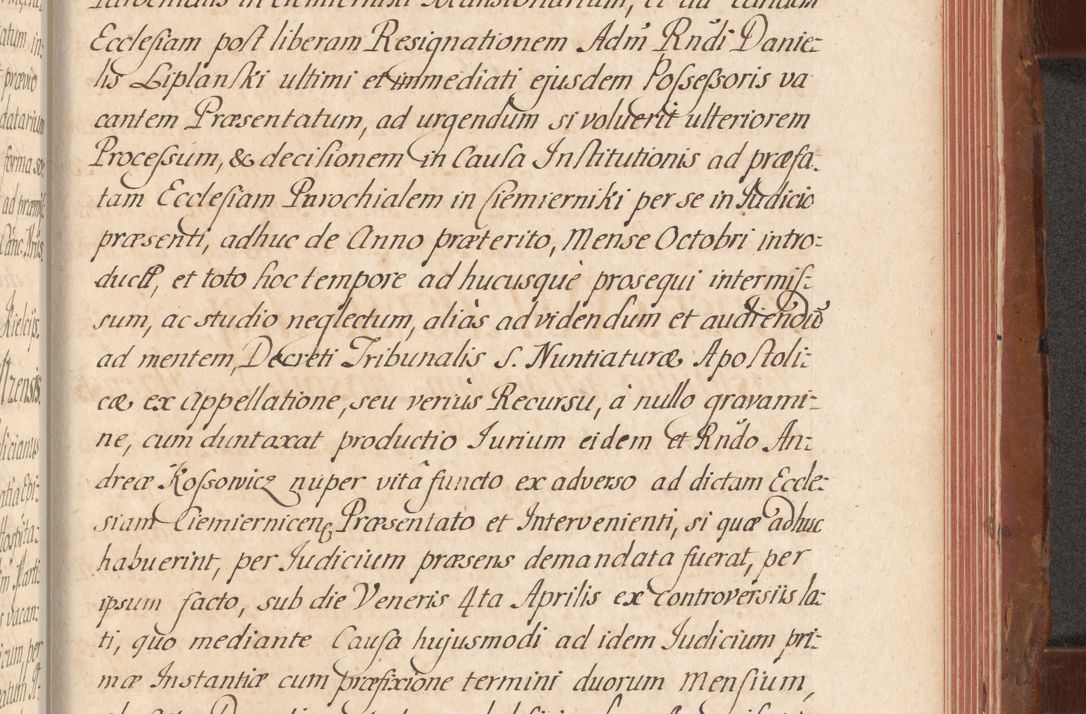 Ecclesiam post liberam Resignationem Adm̃ Rñdi Danie:
lis Liplanski ultimi et immediati ejusdem Possessoris va
cantem Præsentatum, ad urgendum si voluerit ulteriorem
Processum, & decisionem in Causa Institutionis ad præfa:
tam Ecclesiam Parochialem in Ciemierniki per se in Iudicio
præsenti, adhuc de Anno præterito, Mense Octobri intro:
duct, et toto hoc tempore ad hucusquè prosequi intermis:
sum, ac studio neglectum, aliàs ad videndum et audiendũ
ad mentem, Decreti Tribunalis S. Nuntiaturæ Apostoli:
cæ ex Appellatione, seu veriùs Recursu, à nullo gravami:
ne, cum duntaxat productio Iurium eidem et Rñdo An:
dreæ Kossowicz nuper vitâ functo ex adverso ad dictam Eccle:
siam Ciemiernicen̄ Præsentato et Intervenienti, si quæ adhuc
habuerint, per Iudicium præsens demandata fuerat, per
ipsum facto, sub die Veneris 4ta Aprilis ex Controversiis la:
ti, quo mediante Causa hujusmodi ad idem Iudicium pri:
mæ Instantiæ cum præfixione termini duorum Mensium,